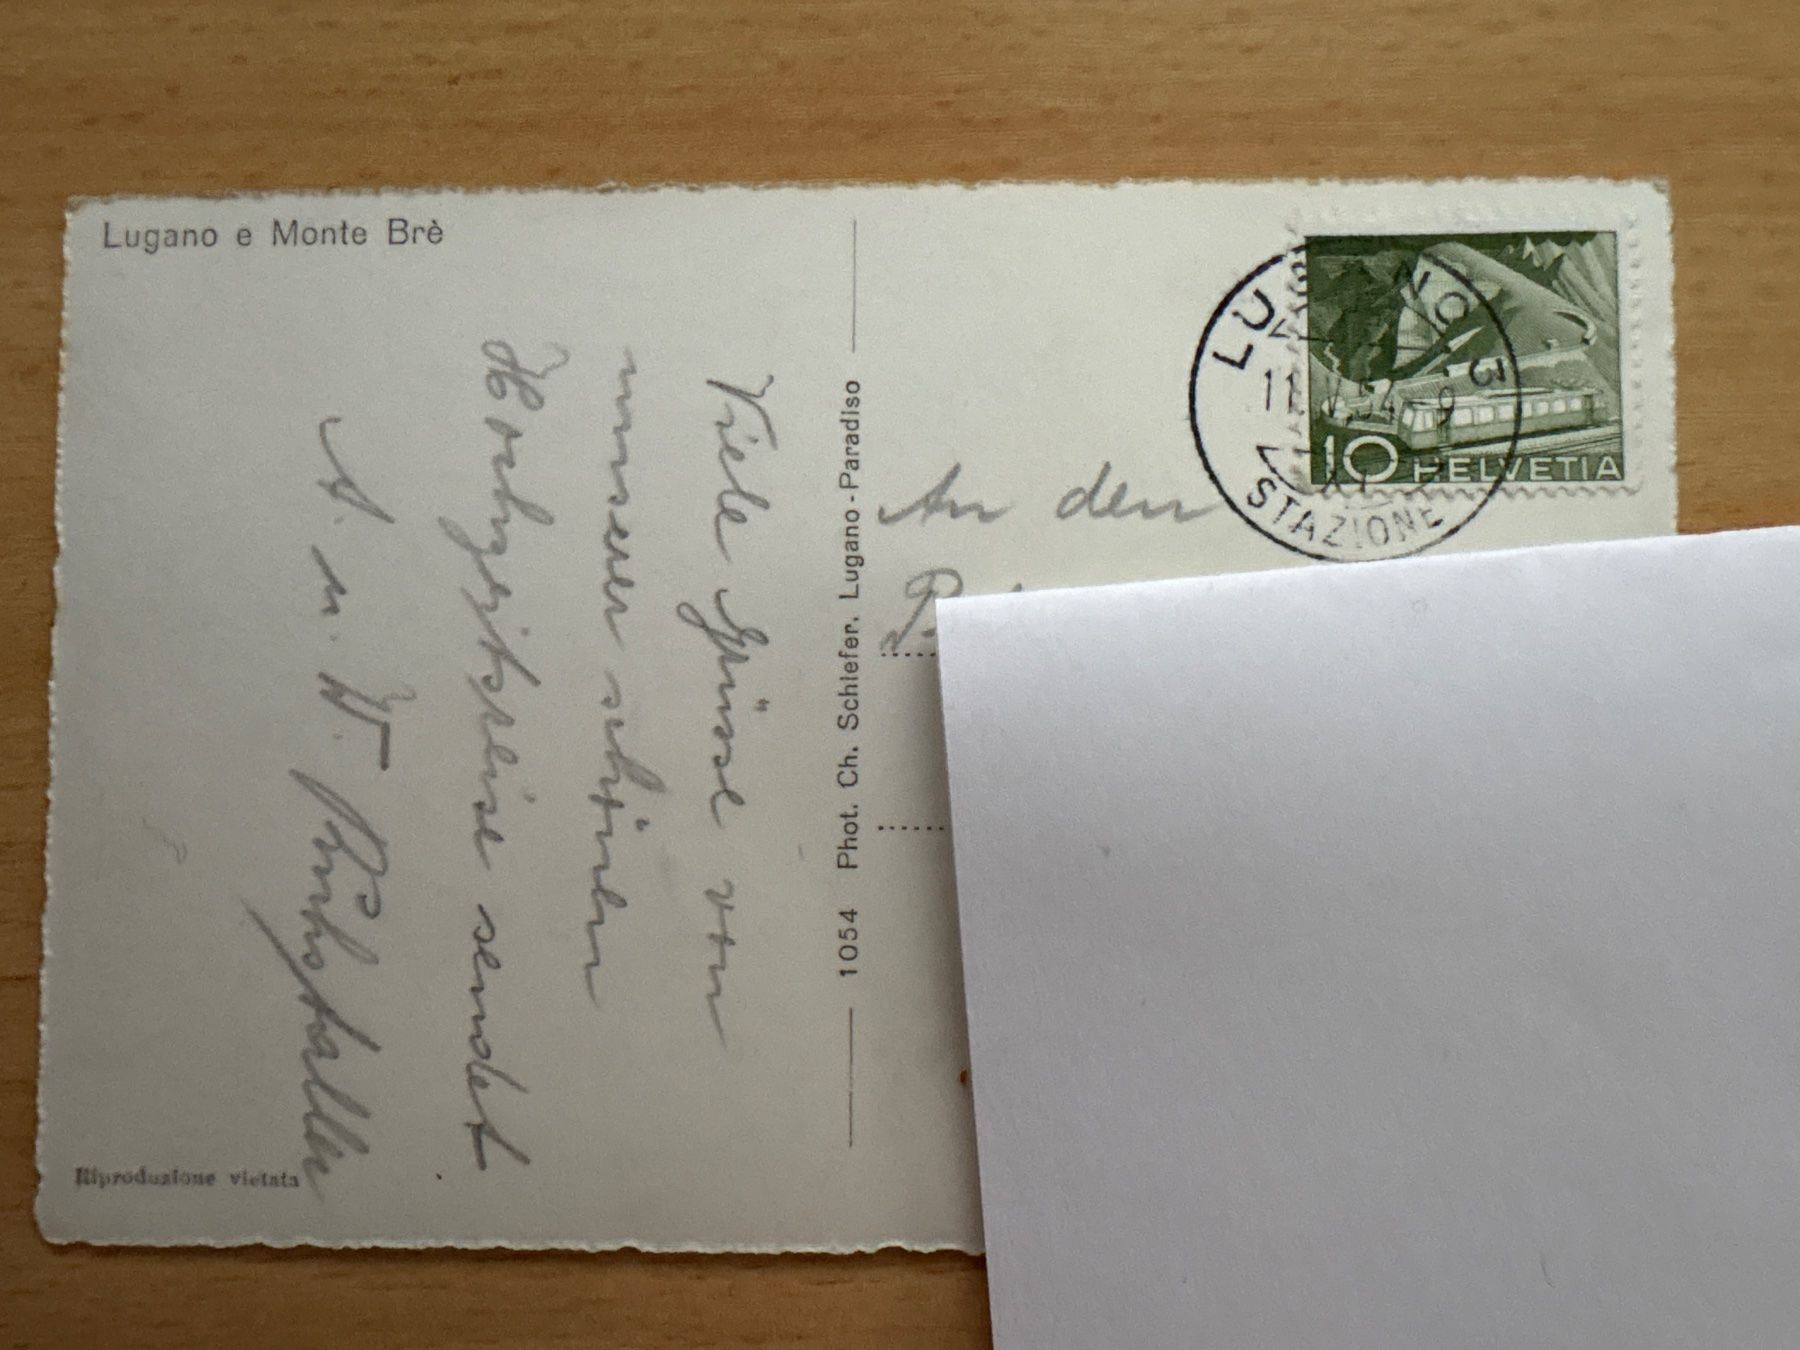 Lugano e Monte Brè
Viele Grüsse von
unserer schönen
Hochzeitsreise sendet
A. u. W.
Riproduzione vietata
1054 Phot. Ch. Schiefer, Lugano-Paradiso
LUGANO 3
11. V. 54 - 9
STAZIONE
10 HELVETIA
An den